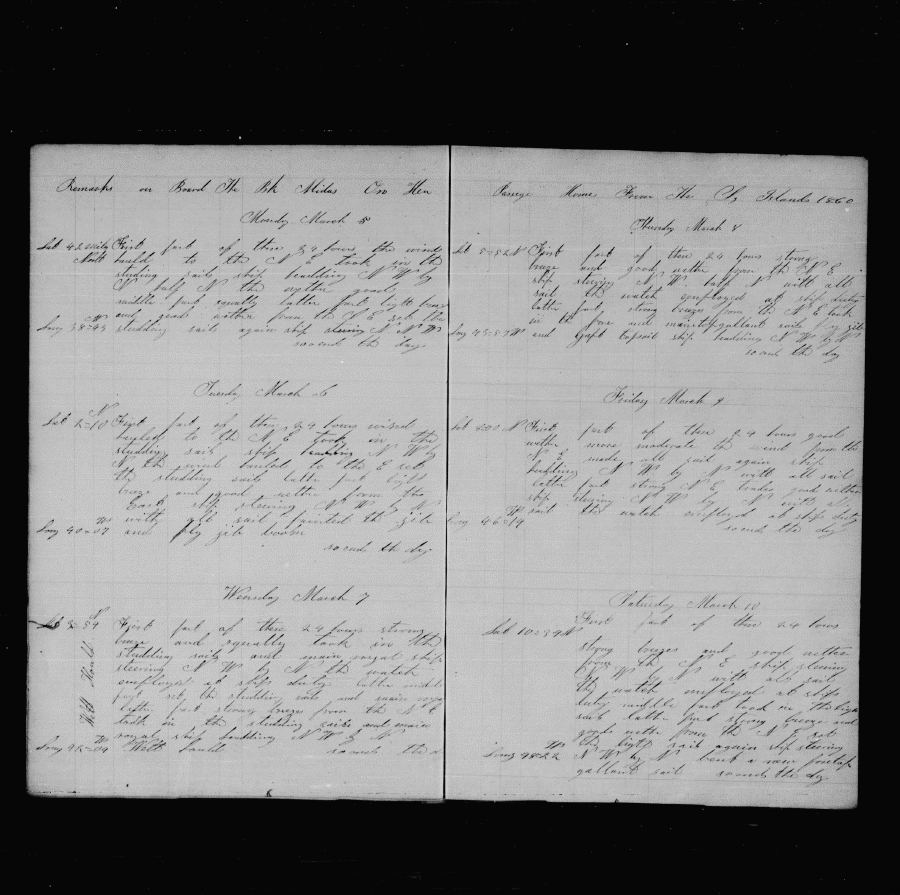 Remarks on Board The Bk Midas Our Men
Monday March 5
Lat 42 mile First part of these 24 hours the wind
North hauld to the N E took in the
studing sails ship heading N W by
N half N the wether good
middle part squally latter part light breze
and good wether from the S E set the
Long 38=43 W studding sails again ship steering N N W
so ends the day
Tuesday March 6
Lat 2=10 N First part of these 24 hours wind
hauled to the N E took in the
studding sail ship heading N W by
N the wind hauled to the E sets
the studding sails latter part light
breze and good wether from the
East ship steering N W by N
with all sail painted the jib
Long 40=07 W and fly jib boom
so ends the day
Wensday March 7
Lat 3=59 N First part of these 24 hours strong
breze and squally took in the
studding sails and main royal ship
steering N W by N the watch
employed at ships duty latter middle
part set the studding sails and main royal
latter part strong breze from the N E
took in the studding sails and main
royal ship heading N W by N
Long 42=09 W Weth hauld so ends the d
Weth Hauld
Passage Home From The Islands 1860
Thursday March 8
Lat 5=52 N First part of these 24 hours strong
breze and good wether from the N E
ship steering N W half N with all
sail the watch employed at ship duty
latter part strong brezes from the N E took
in the fore and maintopgallant sails fly jib
Long 43=59 W and gaft topsail ship heading N W by W
so ends the day
Friday March 9
Lat 8=00 N First part of these 24 hours good
wether more moderate the wind from the
N E made all sail again ship
heading N W by N with all sail
latter part strong N E trades good wether
ship steering N W by N with all
sail the watch employed at ships duty
Long 46=19 W so ends the day
Saturday March 10
First part of these 24 hours
Lat 10=39 N
strong brezes and good wether
from the N E ship steering
N W by N with all sail
the watch employed at ships
duty middle part took in the light
sail latter part strong breeze and
good wether from the N E set
the light sail again ship steering
Long 48=22 W N W by N bent a new foretop
gallant sail so ends the day